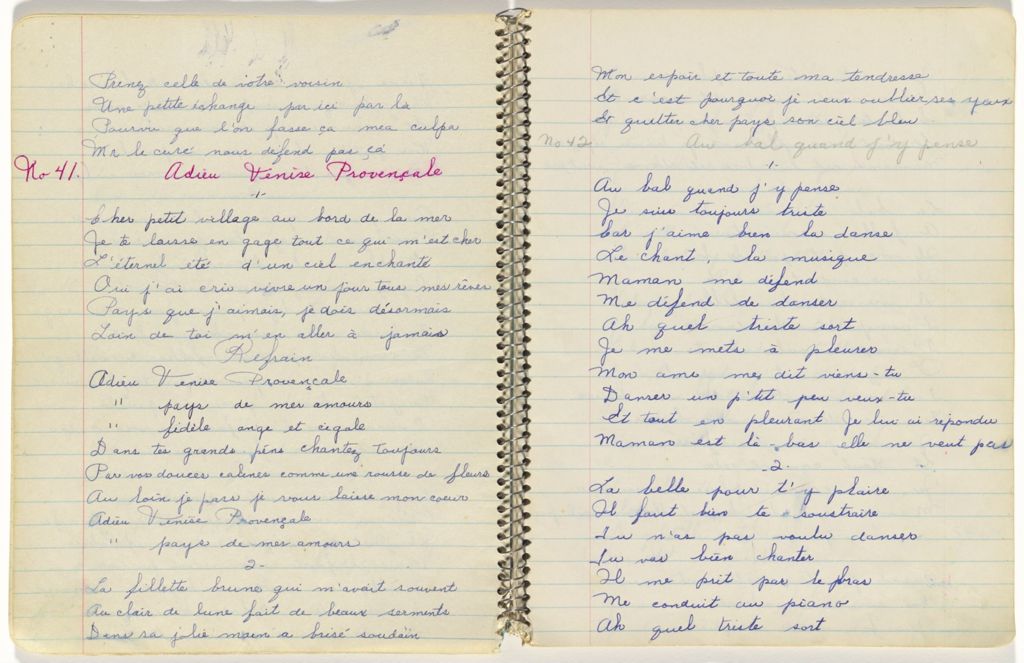 Prenez celle de votre voisin
Une petite échange par ici par la
Pourvu que l'on fasse ça mea culpa
Mr le curé nous défend pas ça
No 41. Adieu Venise Provençale
-1-
Cher petit village au bord de la mer
Je te laisse en gage tout ce qui m'est cher
L'éternel été d'un ciel enchanté
Oui j'ai cru vivre un jour tous mes rêves
Pays que j'aimais, je dois désormais
Loin de toi m'en aller à jamais
Refrain
Adieu Venise Provençale
" pays de mes amours
" fidèle ange et cigale
Dans tes grands pins chantez toujours
Par vos douces calines comme une rousse de fleurs
Au loin je pars je vous laisse mon coeur
Adieu Venise Provençale
" pays de mes amours
2-
La fillette brune qui m'avait souvent
Au clair de lune fait de beaux serments
Dans sa jolie main a brisé soudain
Mon espoir et toute ma tendresse
Et c'est pourquoi je veux oublier ses yeux
Et quitter cher pays son ciel bleu
No 42 Au bal quand j'y pense
-1-
Au bal quand j'y pense
Je suis toujours triste
Car j'aime bien la danse
Le chant, la musique
Maman me défend
Me défend de danser
Ah quel triste sort
Je me mets à pleurer
Mon ami me dit viens-tu
Danser un p'tit peu veux-tu
Et tout en pleurant Je lui ai répondu
Maman est là-bas elle ne veut pas
-2-
La belle pour t'y plaire
Il faut bien te soustraire
Tu n'as pas voulu danser
Tu vas bien chanter
Il me prit par le bras
Me conduit au piano
Ah quel triste sort